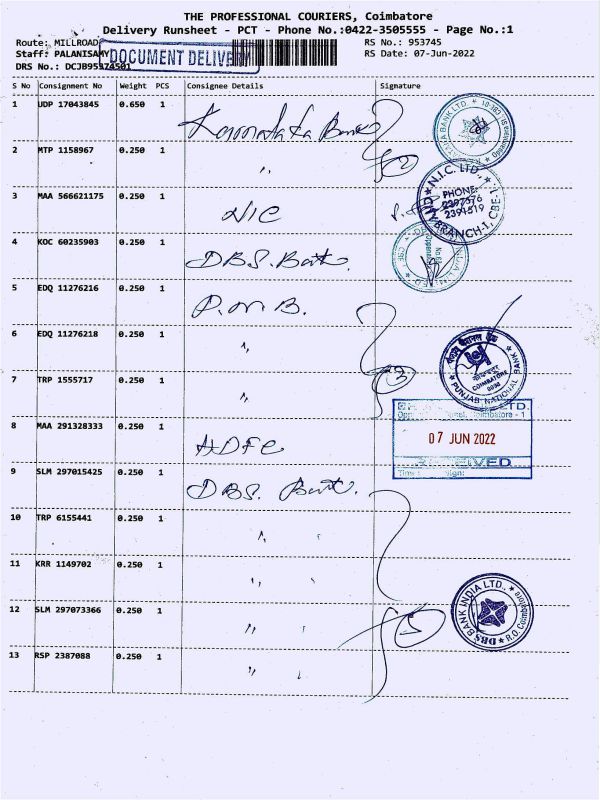 THE PROFESSIONAL COURIERS, Coimbatore
Delivery Runsheet - PCT - Phone No.:0422-3505555 - Page No.:1
Route: MILLROAD
RS No.: 953745
Staff: PALANISAMY
RS Date: 07-Jun-2022
DOCUMENT DELIVERY
DRS No.: DCJB95374501
S No Consignment No Weight PCS Consignee Details Signature
1 UDP 17043845 0.650 1 Karnataka Bank
2 MTP 1158967 0.250 1 〃
3 MAA 566621175 0.250 1 NIC
N.I.C. LTD.,
PHONE:
2397576
2391519
BRANCH-I, CBE-1.
4 KOC 60235903 0.250 1 DBS. Bank.
5 EDQ 11276216 0.250 1 P.N.B.
6 EDQ 11276218 0.250 1 〃
7 TRP 1555717 0.250 1 〃
COIMBATORE
PUNJAB NATIONAL BANK
LTD.
Coimbatore - 1
07 JUN 2022
RECEIVED
8 MAA 291328333 0.250 1 HDFC
9 SLM 297015425 0.250 1 DBS. Bank.
10 TRP 6155441 0.250 1 〃 〃
11 KRR 1149702 0.250 1 〃 〃
12 SLM 297073366 0.250 1 〃 〃
13 RSP 2387088 0.250 1 〃 〃
DBS BANK INDIA LTD.
R.O. Coimbatore